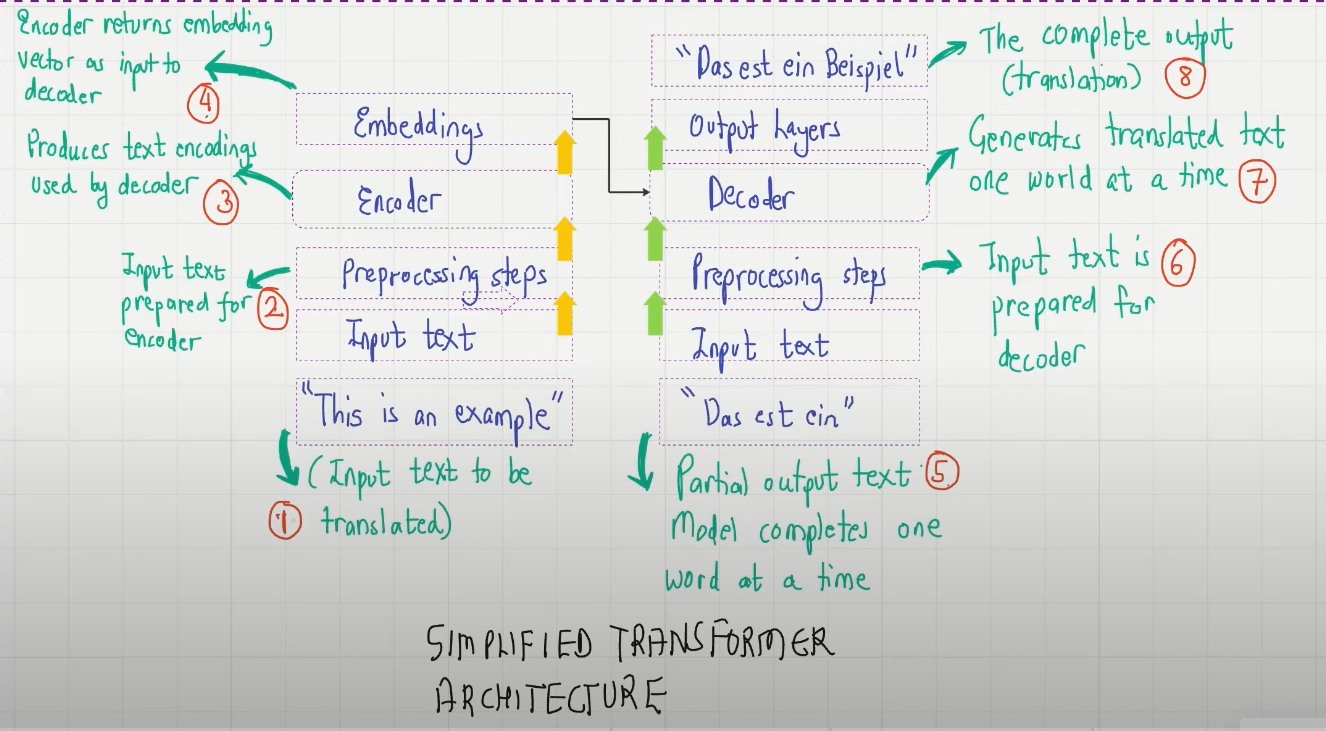 Encoder returns embedding
vector as input to
decoder
4
Produces text encodings
used by decoder
3
Input text
prepared for
encoder
2
Embeddings
Encoder
Preprocessing steps
Input text
"This is an example"
(Input text to be
translated)
1
"Das est ein Beispiel"
Output Layers
Decoder
Preprocessing steps
Input text
"Das est ein"
Partial output text 5
Model completes one
word at a time
The complete output
(translation) 8
Generates translated text
one world at a time 7
Input text is 6
prepared for
decoder
SIMPLIFIED TRANSFORMER
ARCHITECTURE